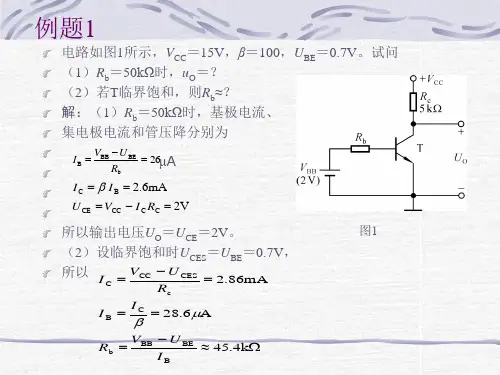 例题1
电路如图1所示，VCC＝15V，β＝100，UBE＝0.7V。试问
（1）Rb＝50kΩ时，uO＝？
（2）若T临界饱和，则Rb≈？
解：（1）Rb＝50kΩ时，基极电流、
集电极电流和管压降分别为
IB = (VBB − UBE)/Rb = 26μA
IC = β IB = 2.6mA
UCE = VCC − ICRC = 2V
所以输出电压UO＝UCE＝2V。
（2）设临界饱和时UCES＝UBE＝0.7V，
所以
IC = (VCC − UCES)/Rc = 2.86mA
IB = IC/β = 28.6μA
Rb = (VBB − UBE)/IB ≈ 45.4kΩ
+VCC
Rc
5 kΩ
+
Rb
T
UO
VBB
(2 V)
−
图1